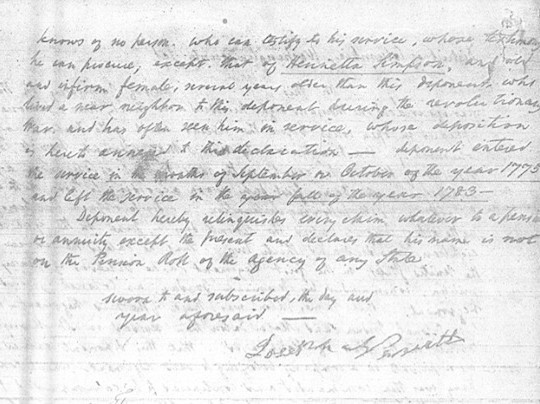 knows of no person who can testify to his service, whose testimony
he can procure, except that of Henrietta Simpson, and old
and infirm female, several years older than this deponent, who
lived a near neighbor to this deponent during the revolutionary
War, and has often seen him in service, whose deposition
is hereto annexed to this declaration — deponent entered
the service in the months of September or October of the year 1775
and left the service in the year fall of the year 1783 —
Deponent hereby relinquishes every claim whatever to a pension
or annuity except the present and declares that his name is not
on the Pension Roll of the agency of any State
sworn to and subscribed, the day and
year aforesaid —